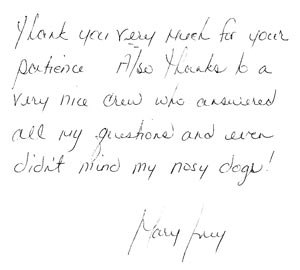 Thank you very much for your
patience Also thanks to a
very nice crew who answered
all my questions and even
didn't mind my nosy dogs!
Mary